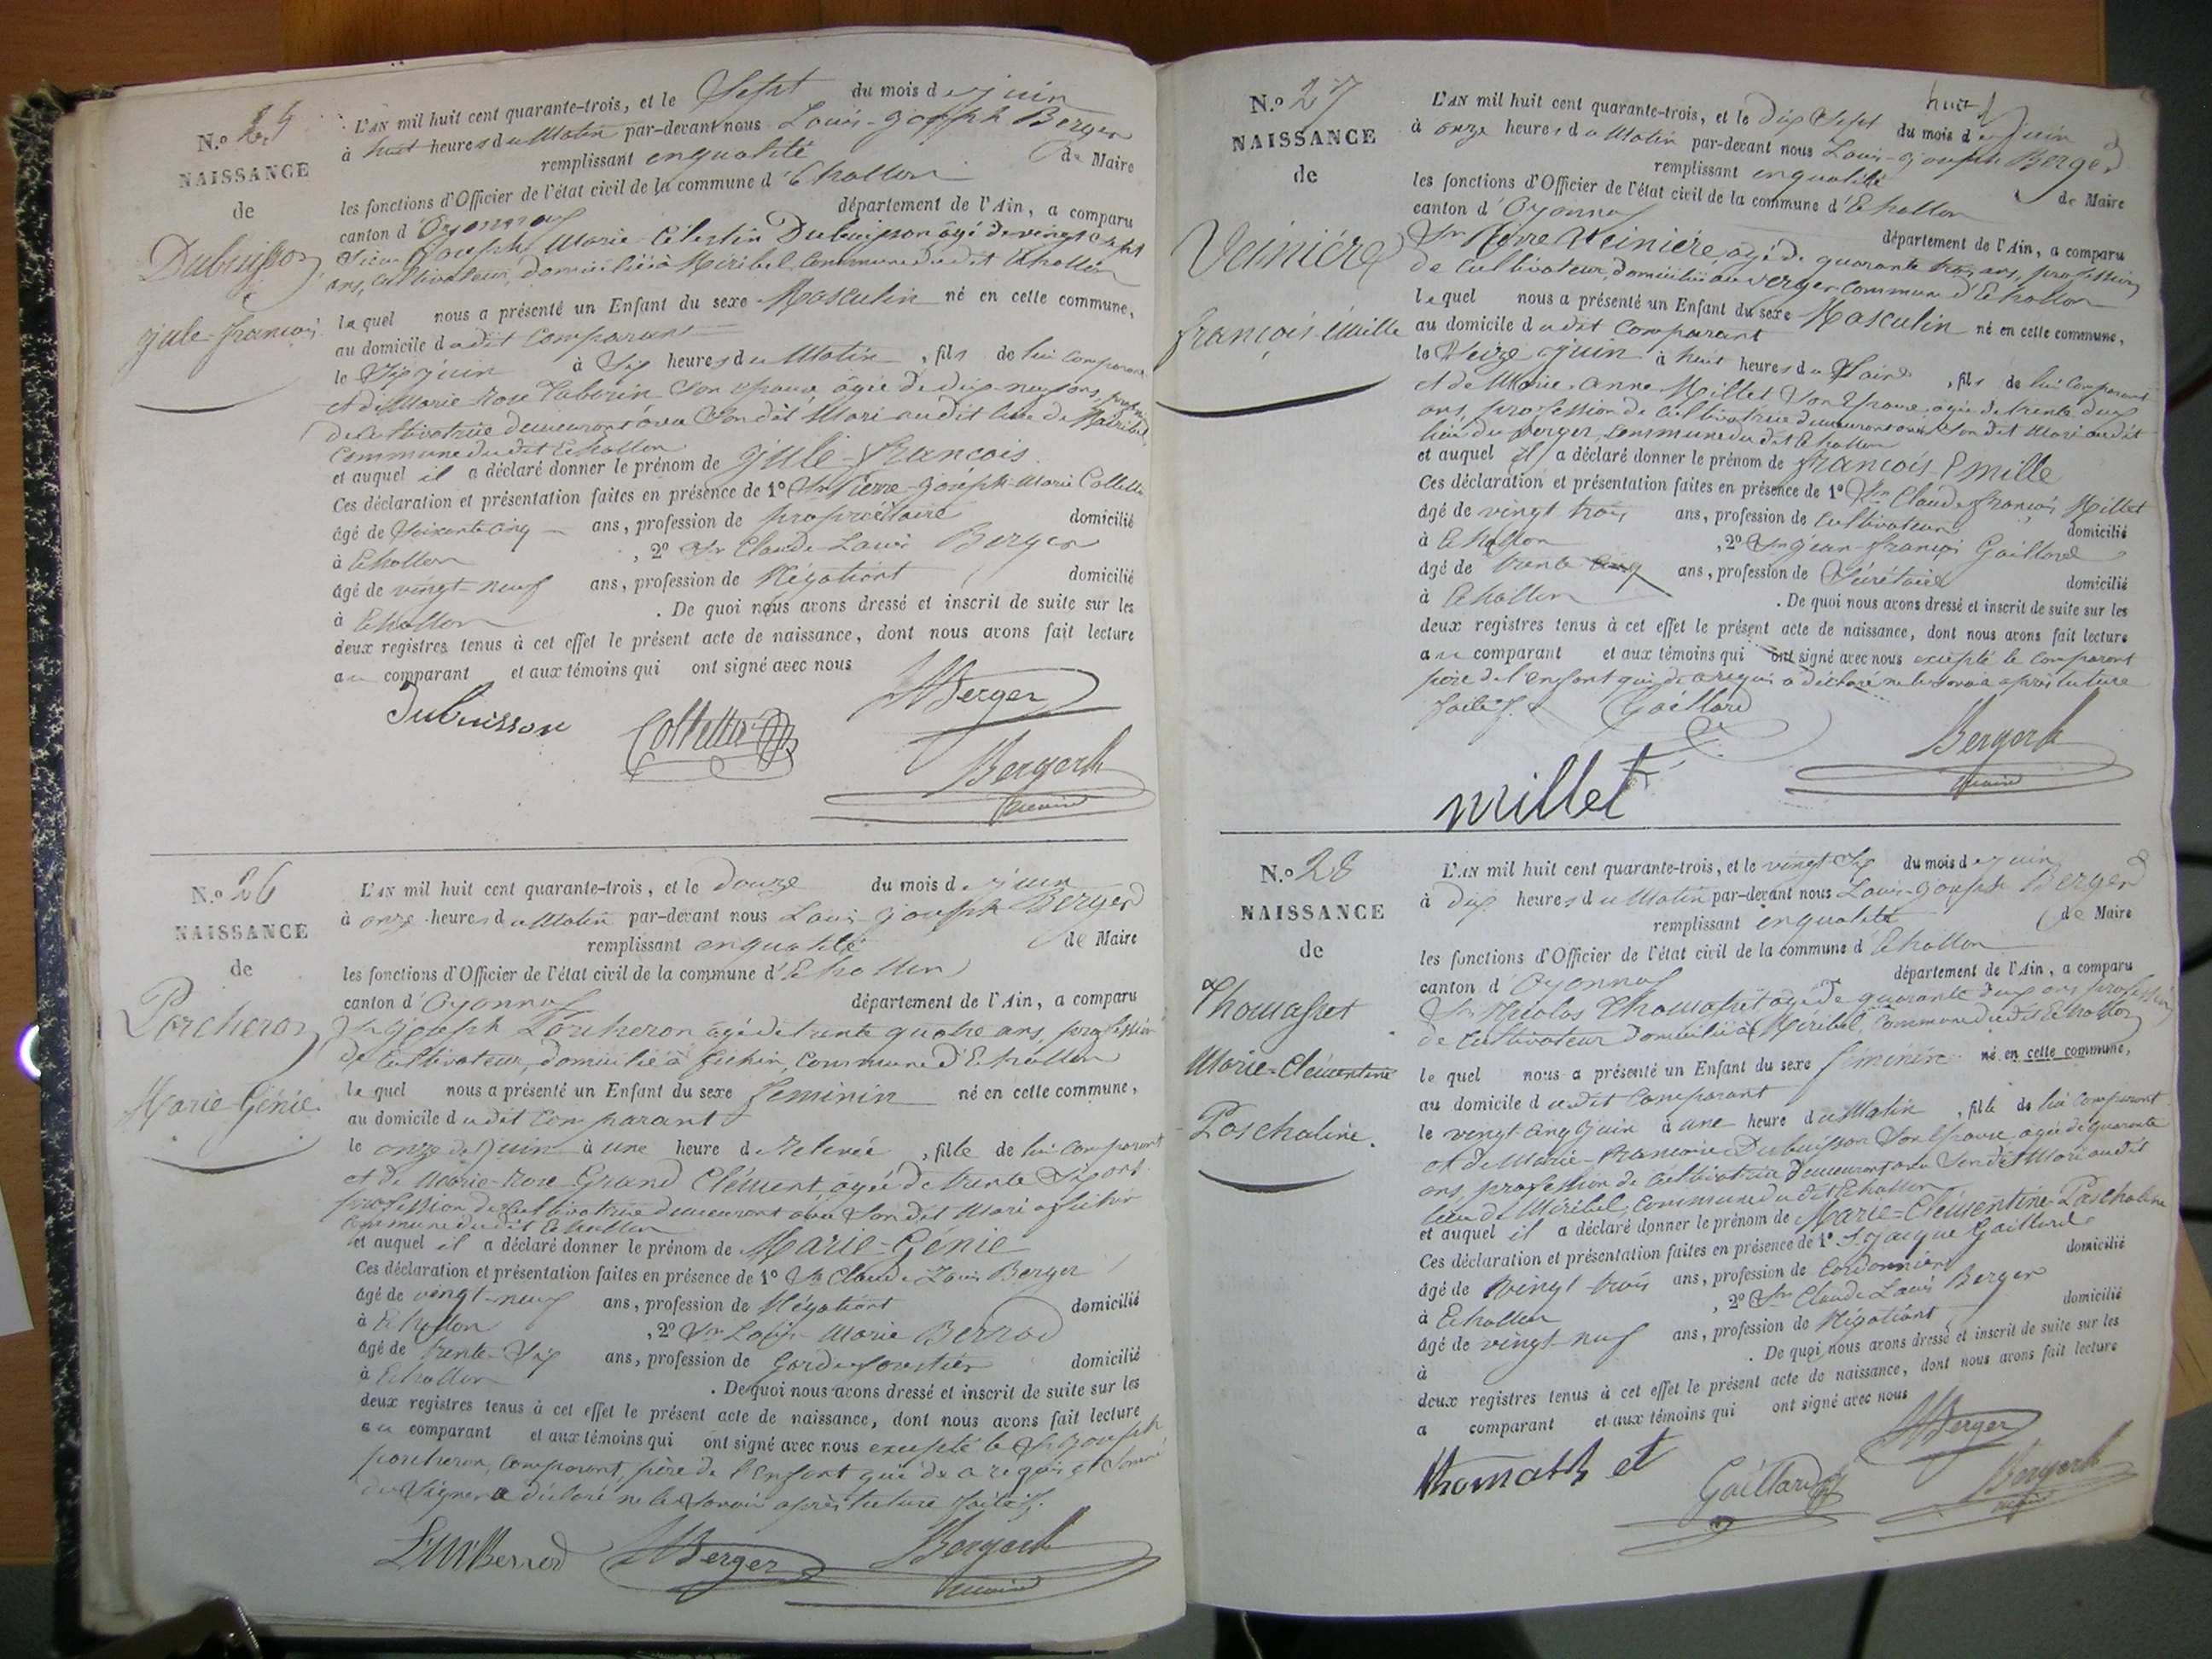 N.o 25
NAISSANCE
de
Dubuisson
jule-francois
L'AN mil huit cent quarante-trois, et le Sept du mois de juin
à huit heures du Matin par-devant nous Louis-joseph Berger
remplissant en qualité de Maire
les fonctions d'Officier de l'état civil de la commune d'Echallon
canton d'Oyonnax département de l'Ain, a comparu
Sieur Joseph Marie Célestin Dubuisson âgé de vingt sept
ans, Cultivateur, domicilié à Miribel Commune du dit Echallon
lequel nous a présenté un Enfant du sexe Masculin né en cette commune,
au domicile du dit Comparant
le Six juin à Six heures du Matin, fils de lui Comparant
et de Marie-Rose Taborin Son épouse âgée de dix-neuf ans, profession
de Cultivatrice demeurant avec Son dit Mari au dit lieu de Miribel
Commune du dit Echallon
et auquel il a déclaré donner le prénom de jule-francois
Ces déclaration et présentation faites en présence de 1o Sr Pierre-joseph-Marie Colletta
âgé de Soixante cinq ans, profession de propriétaire domicilié
à Echallon, 2o Sr Claude-Louis Berger
âgé de vingt-neuf ans, profession de Négotiant domicilié
à Echallon. De quoi nous avons dressé et inscrit de suite sur les
deux registres tenus à cet effet le présent acte de naissance, dont nous avons fait lecture
au comparant et aux témoins qui ont signé avec nous
Dubuisson Colletta Berger
Berger
maire
N.o 26
NAISSANCE
de
Porcheron
Marie-Génie
L'AN mil huit cent quarante-trois, et le douze du mois de juin
à onze heures du Matin par-devant nous Louis-joseph Berger
remplissant en qualité de Maire
les fonctions d'Officier de l'état civil de la commune d'Echallon
canton d'Oyonnax département de l'Ain, a comparu
Sr joseph Porcheron âgé de trente quatre ans, profession
de Cultivateur, domicilié à Commune d'Echallon
lequel nous a présenté un Enfant du sexe feminin né en cette commune,
au domicile du dit Comparant
le onze de juin à une heure de Relevée, fille de lui Comparant
et de Marie-Rose Grand Clément âgée de trente Six ans
profession de Cultivatrice demeurant avec Son dit Mari
Commune du dit Echallon
et auquel il a déclaré donner le prénom de Marie-Génie
Ces déclaration et présentation faites en présence de 1o Sr Claude Louis Berger
âgé de vingt-neuf ans, profession de Négotiant domicilié
à Echallon, 2o Sr Louis Marie Berrod
âgé de trente-Six ans, profession de Garde forestier domicilié
à Echallon. De quoi nous avons dressé et inscrit de suite sur les
deux registres tenus à cet effet le présent acte de naissance, dont nous avons fait lecture
au comparant et aux témoins qui ont signé avec nous excepté le Sr joseph
porcheron, Comparant, père de l'enfant qui de ce requis et
de Signer a déclaré ne le Savoir après lecture faite
LM Berrod Berger Berger
maire
N.o 27
NAISSANCE
de
Veinière
françois-émille
huit
L'AN mil huit cent quarante-trois, et le dix Sept du mois de juin
à onze heures du Matin par-devant nous Louis-joseph Berger
remplissant en qualité de Maire
les fonctions d'Officier de l'état civil de la commune d'Echallon
canton d'Oyonnax département de l'Ain, a comparu
Sr Pierre Veinière, âgé de quarante trois ans, profession
de Cultivateur, domicilié au Verger Commune d'Echallon
lequel nous a présenté un Enfant du sexe Masculin né en cette commune,
au domicile du dit Comparant
le Seize juin à huit heures du Soir, fils de lui Comparant
et de Marie-Anne Millet Son Epouse âgée de trente deux
ans, profession de Cultivatrice demeurant avec Son dit Mari au dit
lieu du Verger, Commune du dit Echallon
et auquel il a déclaré donner le prénom de francois Emille
Ces déclaration et présentation faites en présence de 1o Sr Claude françois Millet
âgé de vingt trois ans, profession de Cultivateur domicilié
à Echallon, 2o Sr jean-françois Gaillard
âgé de trente cinq ans, profession de Sécrétaire domicilié
à Echallon. De quoi nous avons dressé et inscrit de suite sur les
deux registres tenus à cet effet le présent acte de naissance, dont nous avons fait lecture
au comparant et aux témoins qui ont signé avec nous excepté le Comparant
père de l'enfant qui de ce requis a déclaré ne le Savoir après lecture
faite. Gaillard
Berger
maire
millet
N.o 28
NAISSANCE
de
Thomasset
Marie-Clémentine
Paschaline.
L'AN mil huit cent quarante-trois, et le vingt Six du mois de juin
à dix heures du Matin par-devant nous Louis-joseph Berger
remplissant en qualité de Maire
les fonctions d'Officier de l'état civil de la commune d'Echallon
canton d'Oyonnax département de l'Ain, a comparu
Sr Nicolas Thomasset âgé de quarante deux ans profession
de Cultivateur domicilié à Miribel, Commune du dit Echallon
lequel nous a présenté un Enfant du sexe féminin né en cette commune,
au domicile du dit Comparant
le vingt cinq juin à une heure du Matin, fille de lui Comparant
et de Marie-Dubuisson Son épouse âgée de quarante
ans, profession de Cultivatrice demeurant avec Son dit Mari au dit
lieu de Miribel, Commune du dit Echallon
et auquel il a déclaré donner le prénom de Marie-Clémentine-Paschaline
Ces déclaration et présentation faites en présence de 1o Sr jacque Gaillard
âgé de vingt trois ans, profession de Cordonnier domicilié
à Echallon, 2o Sr Claude Louis Berger
âgé de vingt-neuf ans, profession de Négotiant domicilié
à. De quoi nous avons dressé et inscrit de suite sur les
deux registres tenus à cet effet le présent acte de naissance, dont nous avons fait lecture
a comparant et aux témoins qui ont signé avec nous
Berger
Gaillard Berger
maire